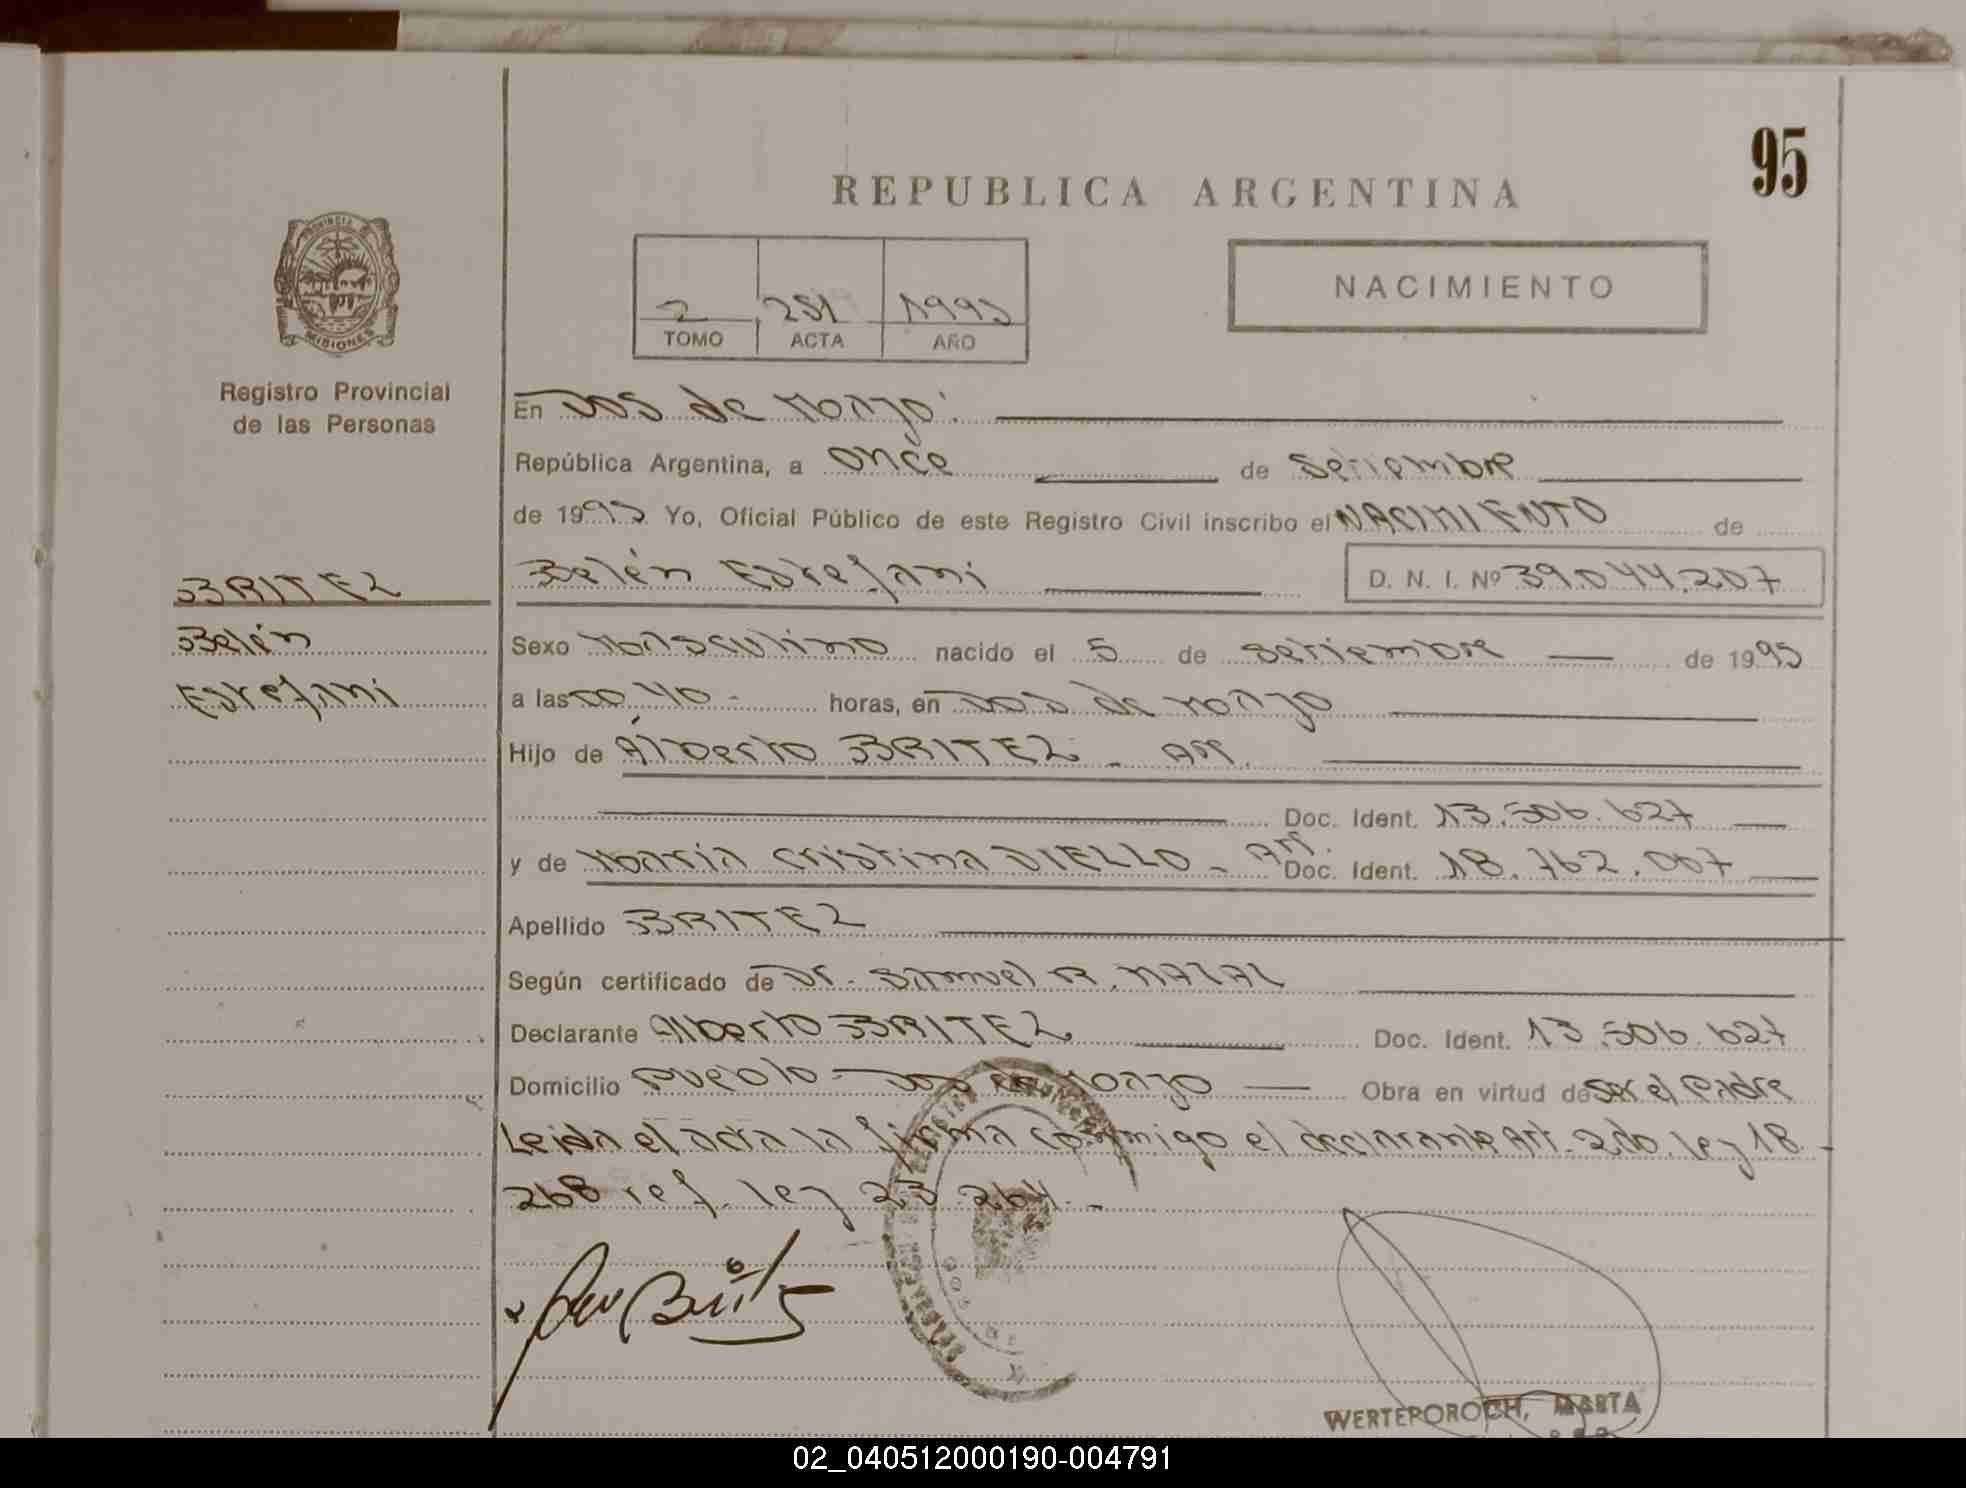 95
REPUBLICA ARGENTINA
NACIMIENTO
2 251 1995
TOMO ACTA AÑO
PROVINCIA DE
MISIONES
Registro Provincial
de las Personas
En Dos de Mayo.
República Argentina, a once de Setiembre
de 1995 Yo, Oficial Público de este Registro Civil inscribo el NACIMIENTO de
BRITEZ
Belén Estefani D. N. I. Nº 39.044.207
Belén
Sexo Masculino nacido el 5 de Setiembre de 1995
Estefani
a las 00,40 - horas, en Dos de Mayo
Hijo de Alberto BRITEZ - Arg.
Doc. Ident. 13.506.627
y de María Cristina DIELLO - Arg. Doc. Ident. 18.762.007
Apellido BRITEZ
Según certificado de Dr. Samuel R. NAZAL
Declarante Alberto BRITEZ Doc. Ident. 13.506.627
Domicilio Pueblo - Dos de Mayo Obra en virtud de ser el Padre
Leida el acta la firma conmigo el declarante Art. 2do. Ley 18.
268 ref. Ley 23.264.-
WERTEPOROCH, MARTA
02_040512000190-004791